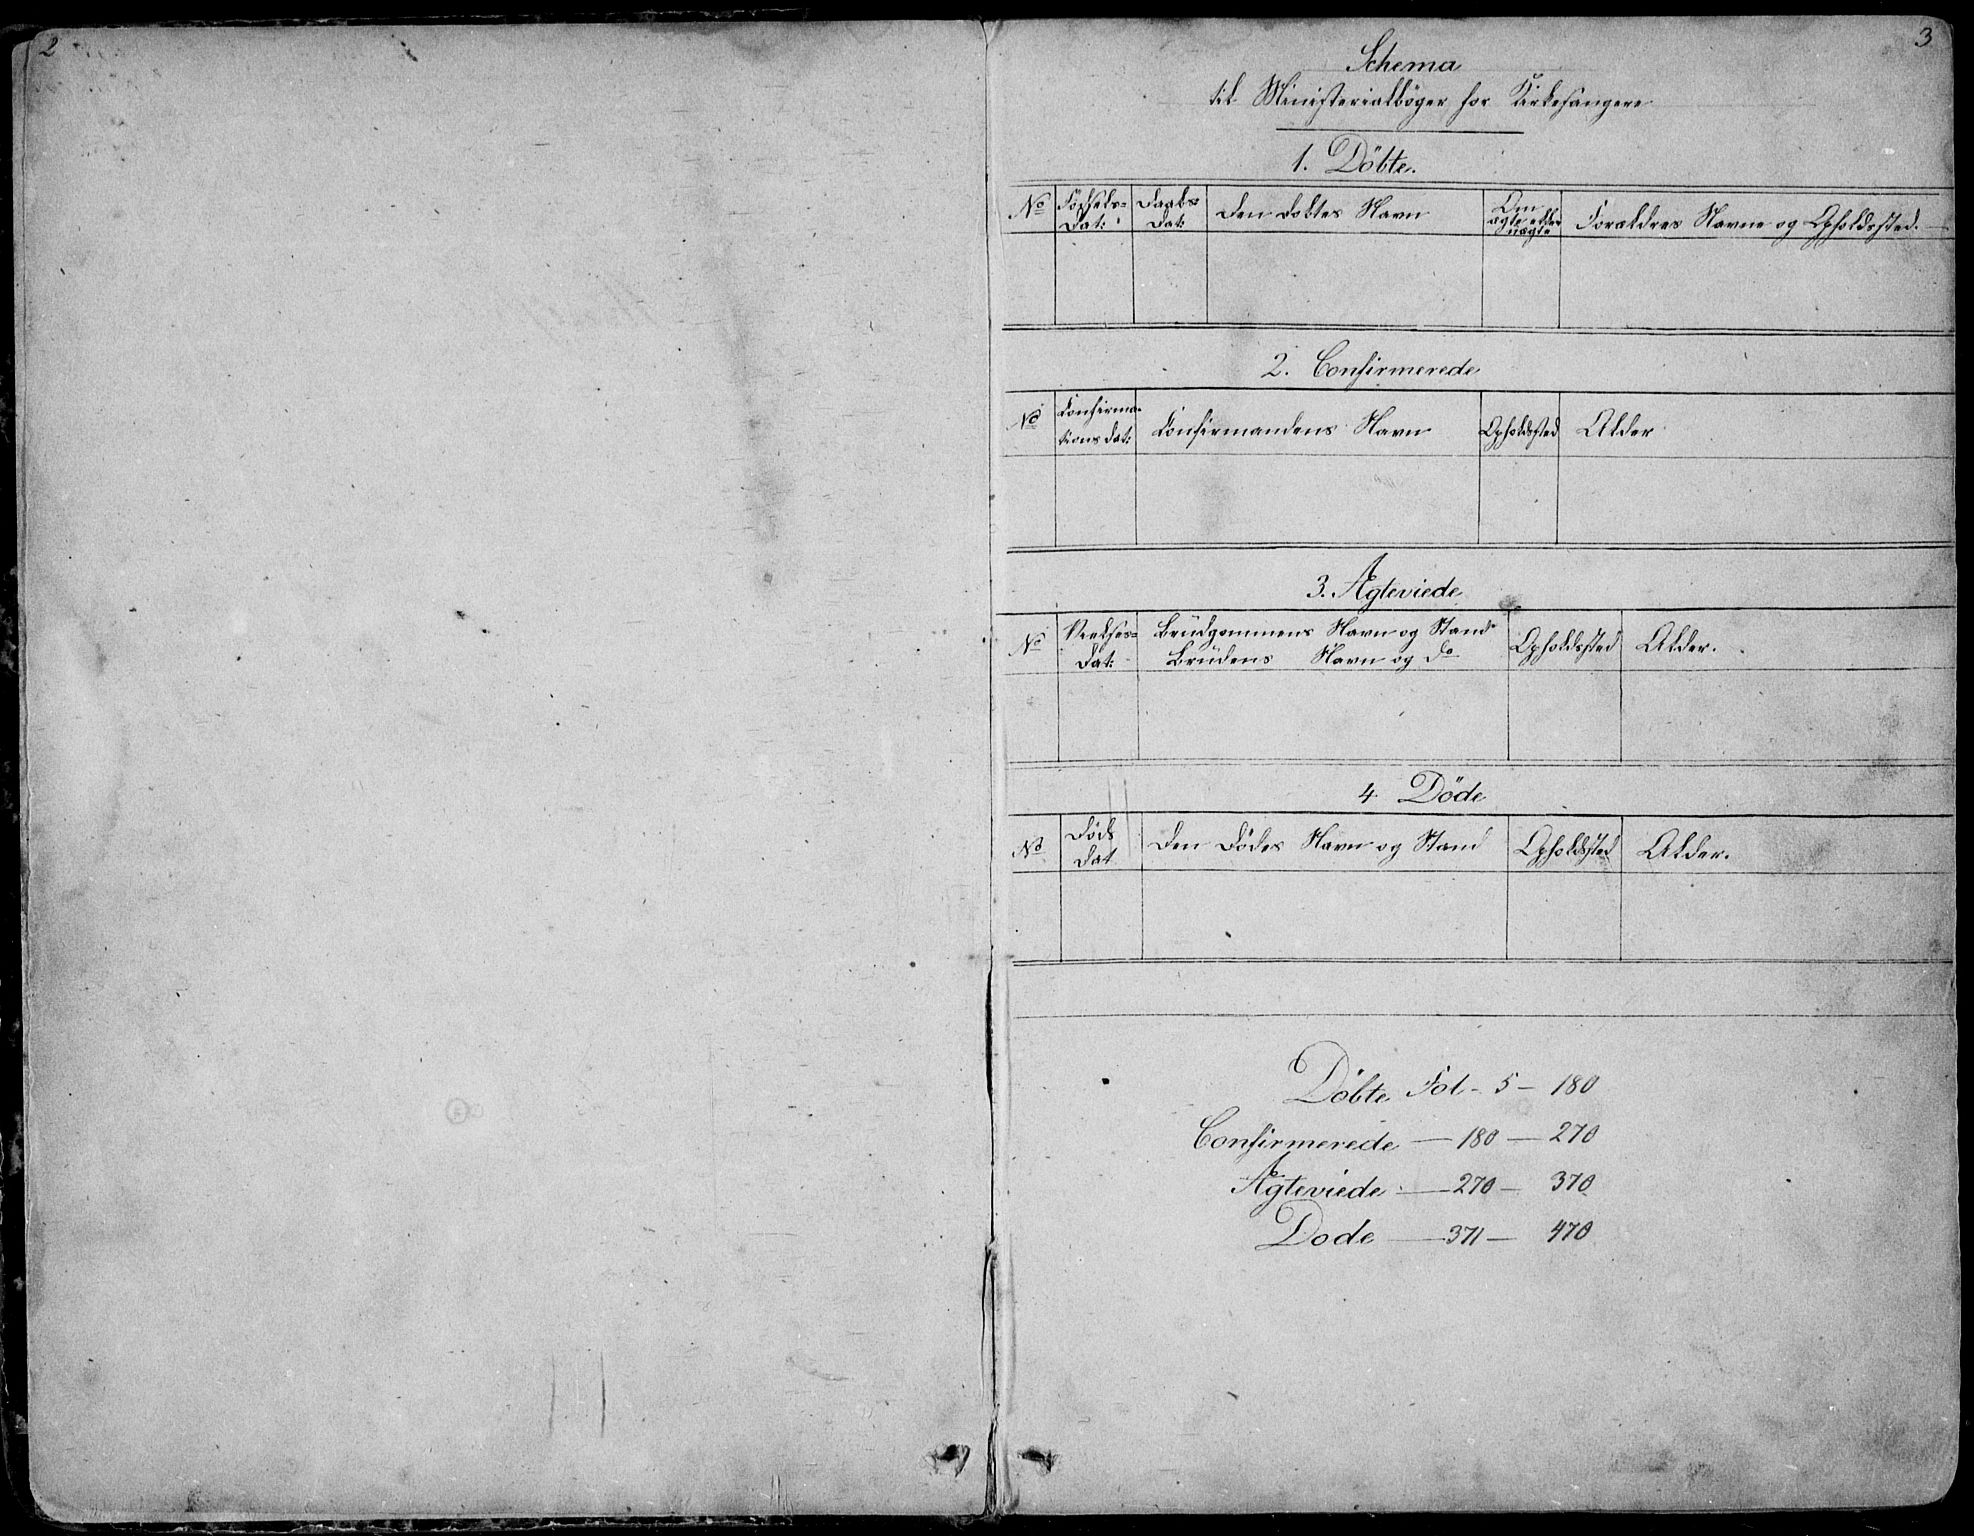 2
3
Schema
til Ministerialbøger for Kirkesangere
1. Döbte.
No Födsels= Dat: Daabs= Dat: Den Dobtes Navn Om ægte eller uægte Forældres Navne og Opholdssted.
2. Confirmerede
No Confirma- tions Dat: Confirmandens Navn Opholdssted Alder
3. Ægteviede
No Vielses= Dat: Brudgommens Navn og Stand Brudens Navn og Do Opholdssted Alder.
4 Döde
No Döds Dat Den Dödes Navn og Stand Opholdssted Alder.
Döbte Fol - 5 - 180
Confirmerede - 180 - 270
Ægteviede - 270 - 370
Dode - 371 - 470